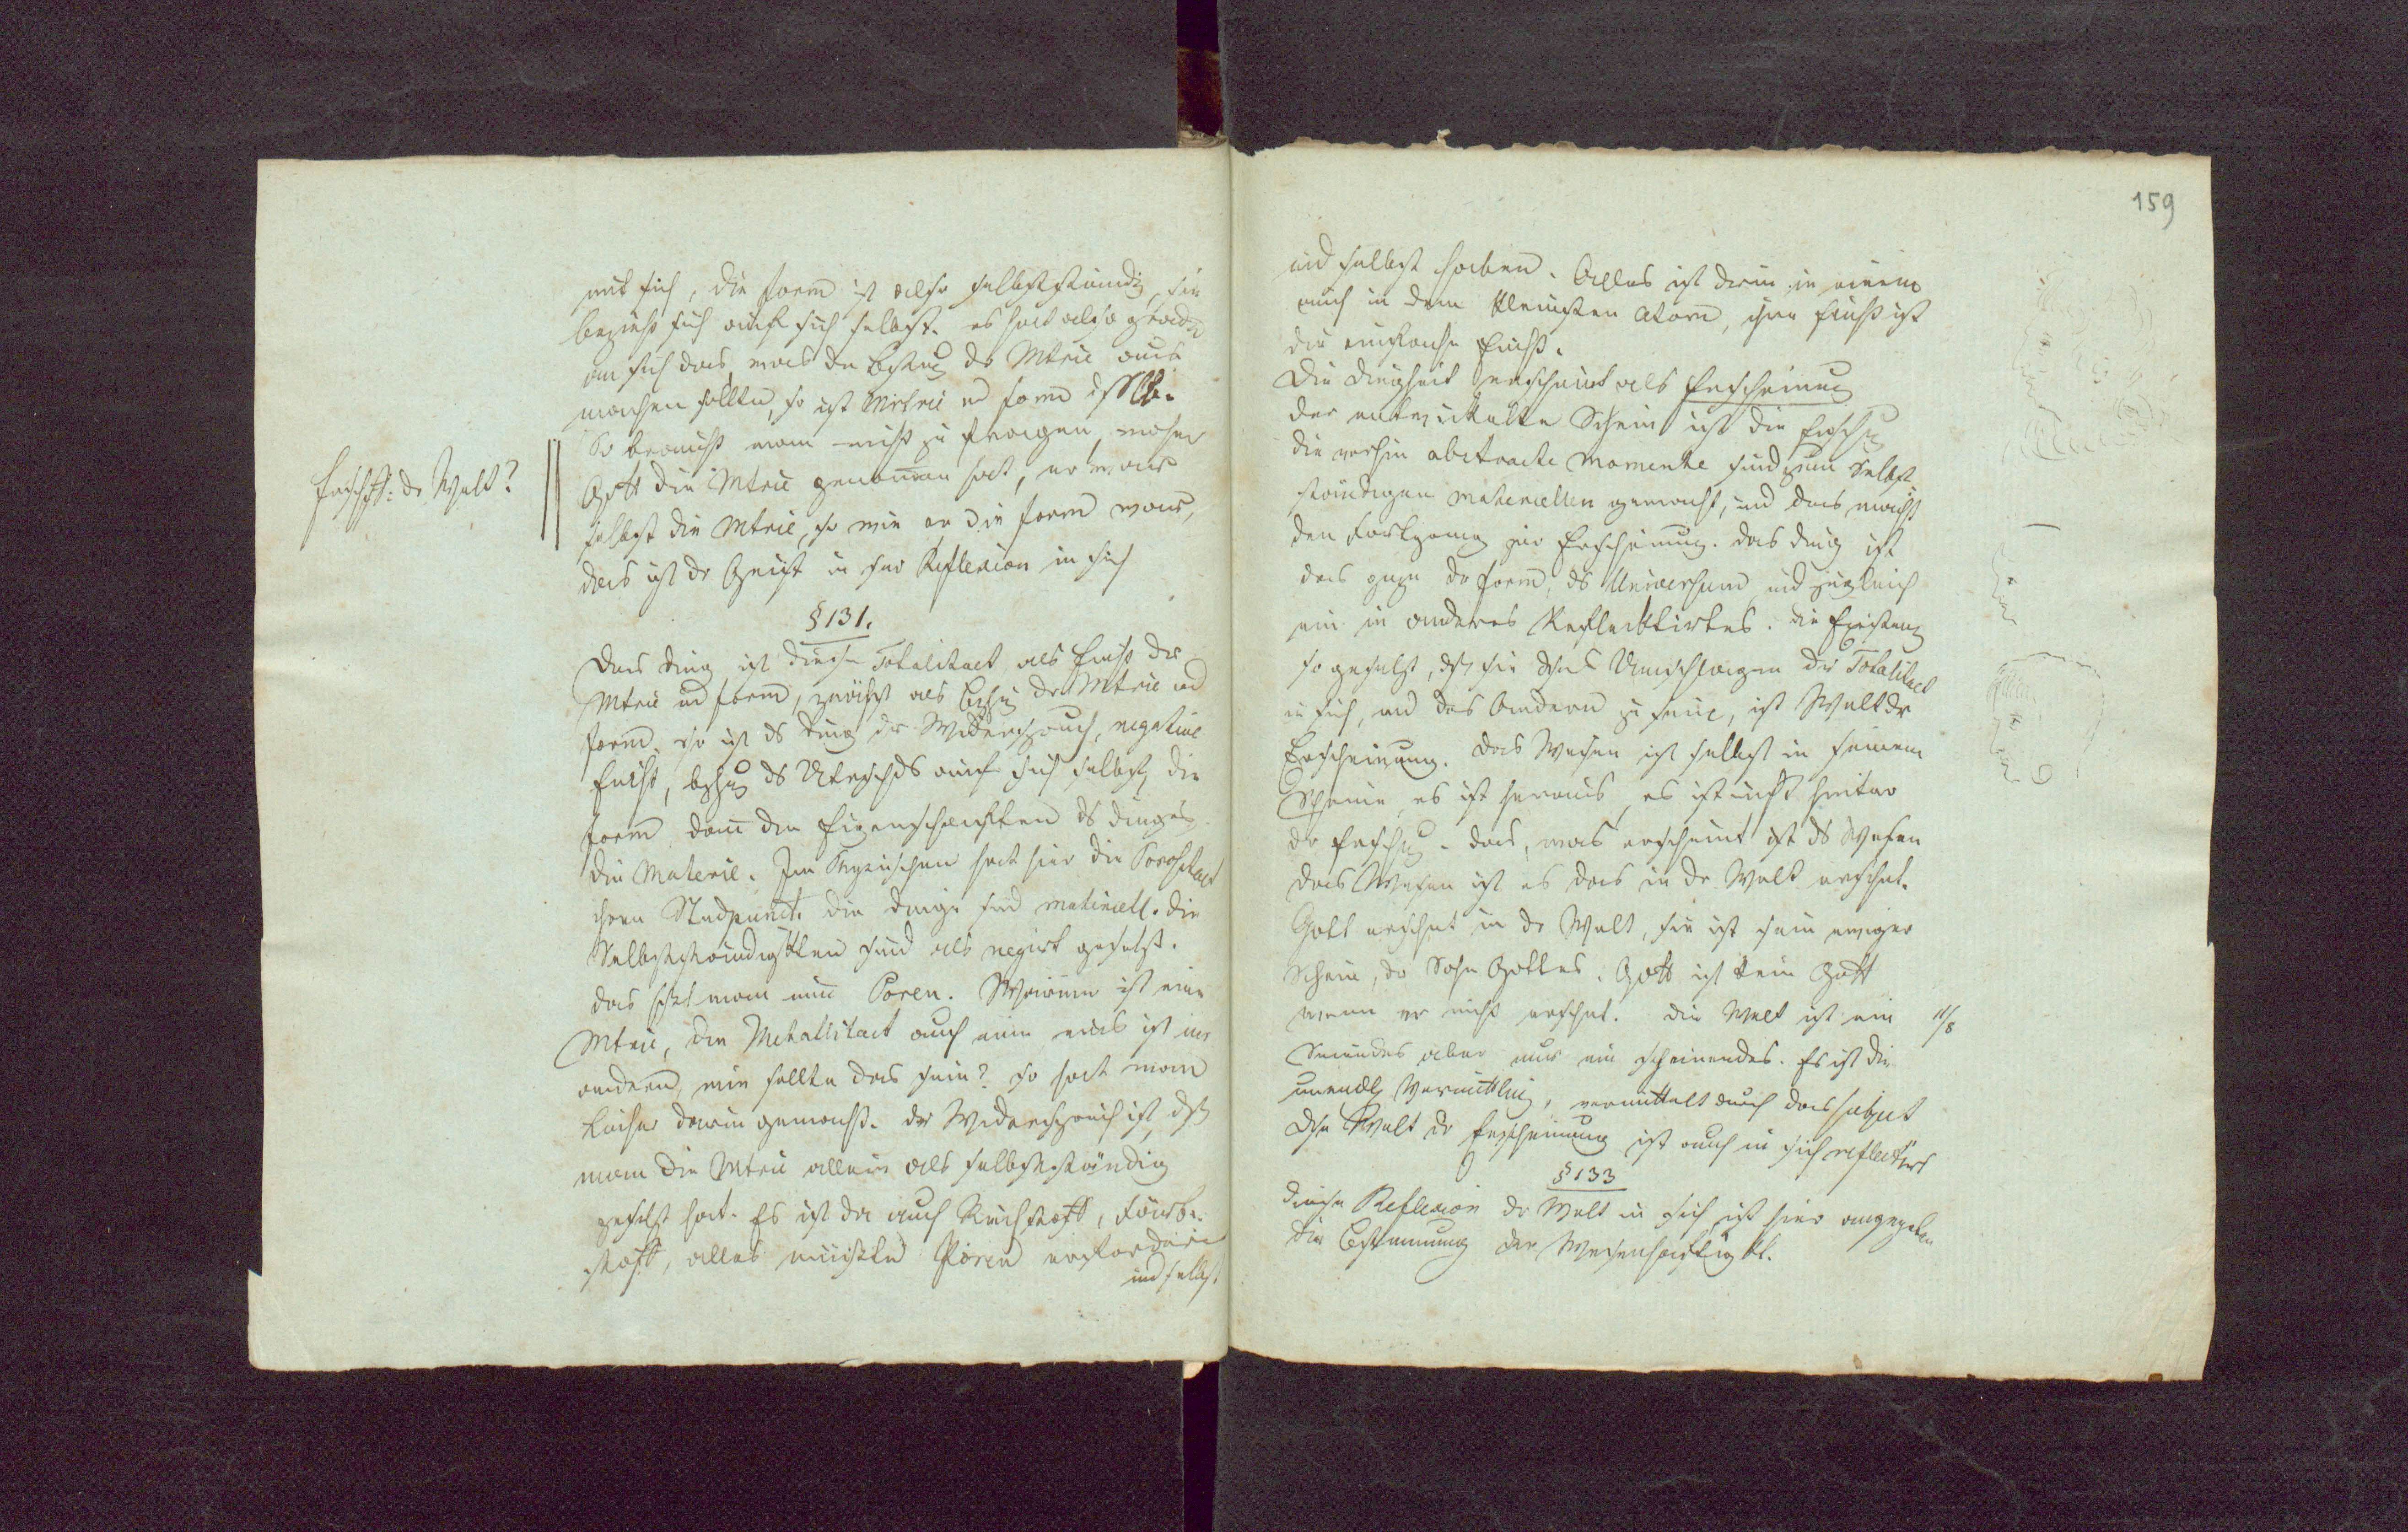 mit sich, die Form ist also selbstständig, sie
bezieht sich auf sich selbst. es hat also grade
an sich das, was die Bezhug der Mtrie aus
machen sollte, so ist Mtrie ud Form dsslb.
So braucht man nicht zu fragen, woher
Erschff: dr Welt?
Gott die Mtrie genom̄en hat, er war
selbst die Mtrie, so wie er die Form war,
das ist dr Geist in sr Reflexion in sich
§ 131.
Das Ding ist diese Totalitaet als Einht der
Mtrie ud Form, zunächst als Bezhug dr Mtrie ud
Form. so ist ds Ding dr Widerspruch, negative
Einht, bezhug ds Utrschds auf sich selbst, die
Form dan̄ die Eigenschaften ds Dinges
die Materie. Im Physischen hat hier die Porositaet
ihren Stndpunct. die Dinge sind materiell. die
Selbstständigktten sind als negirt gesetzt.
das heißt man nun̄ Poren. Wärme ist eine
Mtrie, die Metallitaet auch eine eins ist im
andern, wie sollte das sein? so hat man
Löcher darin gemacht. der Widerspruch ist, dß
man die Mtrie allein als selbstständig
gesetzt hat. Es ist da auch Riechstoff, Färbe-
stoff, alles müßte Poren erfordern
und selbst
159
und selbst haben. Alles ist darin in einem
auch in dem kleinsten Atom, ihre Einht ist
die einfache Einht.
Die Dingheit erscheint als Erscheinung
der entwickelte Schein ist die Erschg
die vorhin abstracte Momente sind zum Selbst
ständigen materiellen gemacht, und das macht
den Fortgang zur Erscheinung. das Ding ist
das ganze dr Form, ds Universum und zugleich
ein in anderes Reflecktirtes. die Existenz
so gesetzt, dß sie das Umschlagen der Totalitaet
in sich, und das Andern zu sein, ist Welt dr
Erscheinung. das Wesen ist selbst in seinem
Scheine, es ist heraus, es ist nicht hinter
dr Erschg. das, was erscheint ist ds Wesen
das Wesen ist es das in dr Welt erschnt.
Gott erschnt in dr Welt, sie ist sein ewiger
Schein, dr Sohn Gottes. Gott ist kein Gott
wenn er nicht erschnt. die Welt ist ein
11/8
Seiendes aber nur ein scheinendes. Es ist die
unendl Vermittlug, vermittelt durch das
Dse Welt dr Erscheinung ist auch in sich reflectirt
§ 133
diese Reflexion dr Welt in sich ist hier angegeben
die Bestimmung der Wesenhaftigkt.